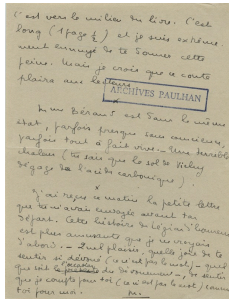 C'est vers le milieu du livre. C'est
long (1 page ½) et je suis extrême-
ment ennuyé de te donner cette
peine. Mais je crois que ce conte
plaira aux lecteurs.
ARCHIVES PAULHAN
est dans le même
état, parfois presque sans
parfois tout à fait vive. Une terrible
chaleur (tu sais que le sol de Vichy
dégage de l'acide carbonique)
J'ai reçu ce matin la petite lettre
que tu m'avais envoyée avant ton
départ. Cette histoire de
est plus amusante que je ne croyais
d'abord. - Quel plaisir, quelle joie de te
sentir si dévoué (ce n'est pas le mot) - quel
que soit du dévouement, de sentir
que je compte pour toi (ce n'est pas le mot) comme
toi pour moi.